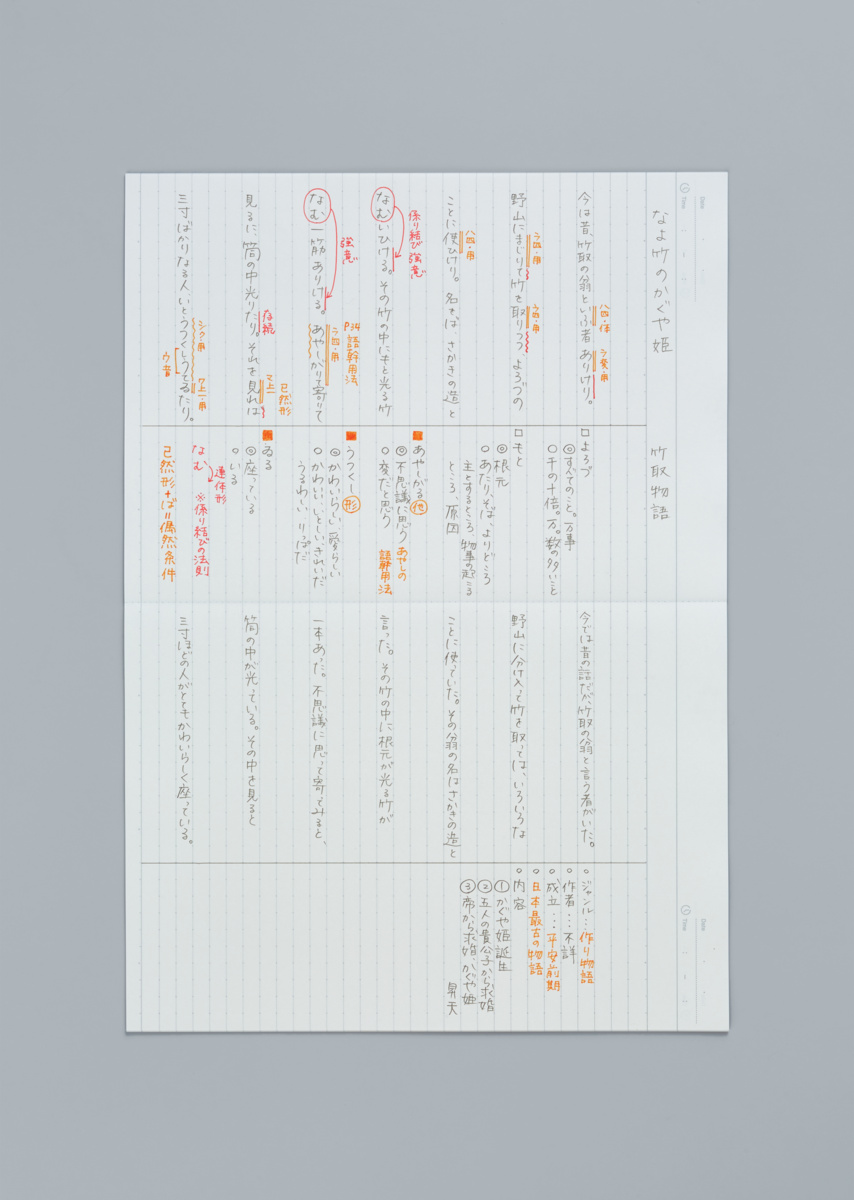 なよ竹のかぐや姫　竹取物語
今は昔、竹取の翁といふ者ありけり。
ハ四・体
ラ変・用
野山にまじりて竹を取りつつ、よろづの
ラ四・用
ラ四・用
ことに使ひけり。名をば、さかきの造と
ハ四・用
なむいひける。その竹の中にもと光る竹
係り結び 強意
なむ一筋ありける。あやしがりて寄りて
強意
ラ四・用
P34 語幹用法
見るに、筒の中光りたり。それを見れば
存続
マ上一
已然形
三寸ばかりなる人、いとうつくしうてゐたり。
シク・用
ウ音
ワ上一・用
□よろづ
◎すべてのこと。万事
○千の十倍。万。数の多いこと
□もと
◎根元
○あたり、そば、よりどころ
主とするところ、物事の起こる
ところ、原因
■あやしがる 他
◎不思議に思う
○変だと思う
あやしの
語幹用法
■うつくし 形
◎かわいらしい、愛らしい
○かわいい、いとしい、きれいだ
うるわしい、りっぱだ
■ゐる
◎座っている
○いる
なむ 連体形 ※係り結びの法則
已然形+ば=偶然条件
今では昔の話だが、竹取の翁と言う者がいた。
野山に分け入って竹を取っては、いろいろな
ことに使っていた。その翁の名はさかきの造と
言った。その竹の中に根元が光る竹が
一本あった。不思議に思って寄ってみると、
筒の中が光っている。その中を見ると
三寸ほどの人がとてもかわいらしく座っている。
○ジャンル…作り物語
○作者…不詳
○成立…平安前期
日本最古の物語
○内容
①かぐや姫誕生
②五人の貴公子から求婚
③帝から求婚、かぐや姫
昇天
Date
Time
Date
Time